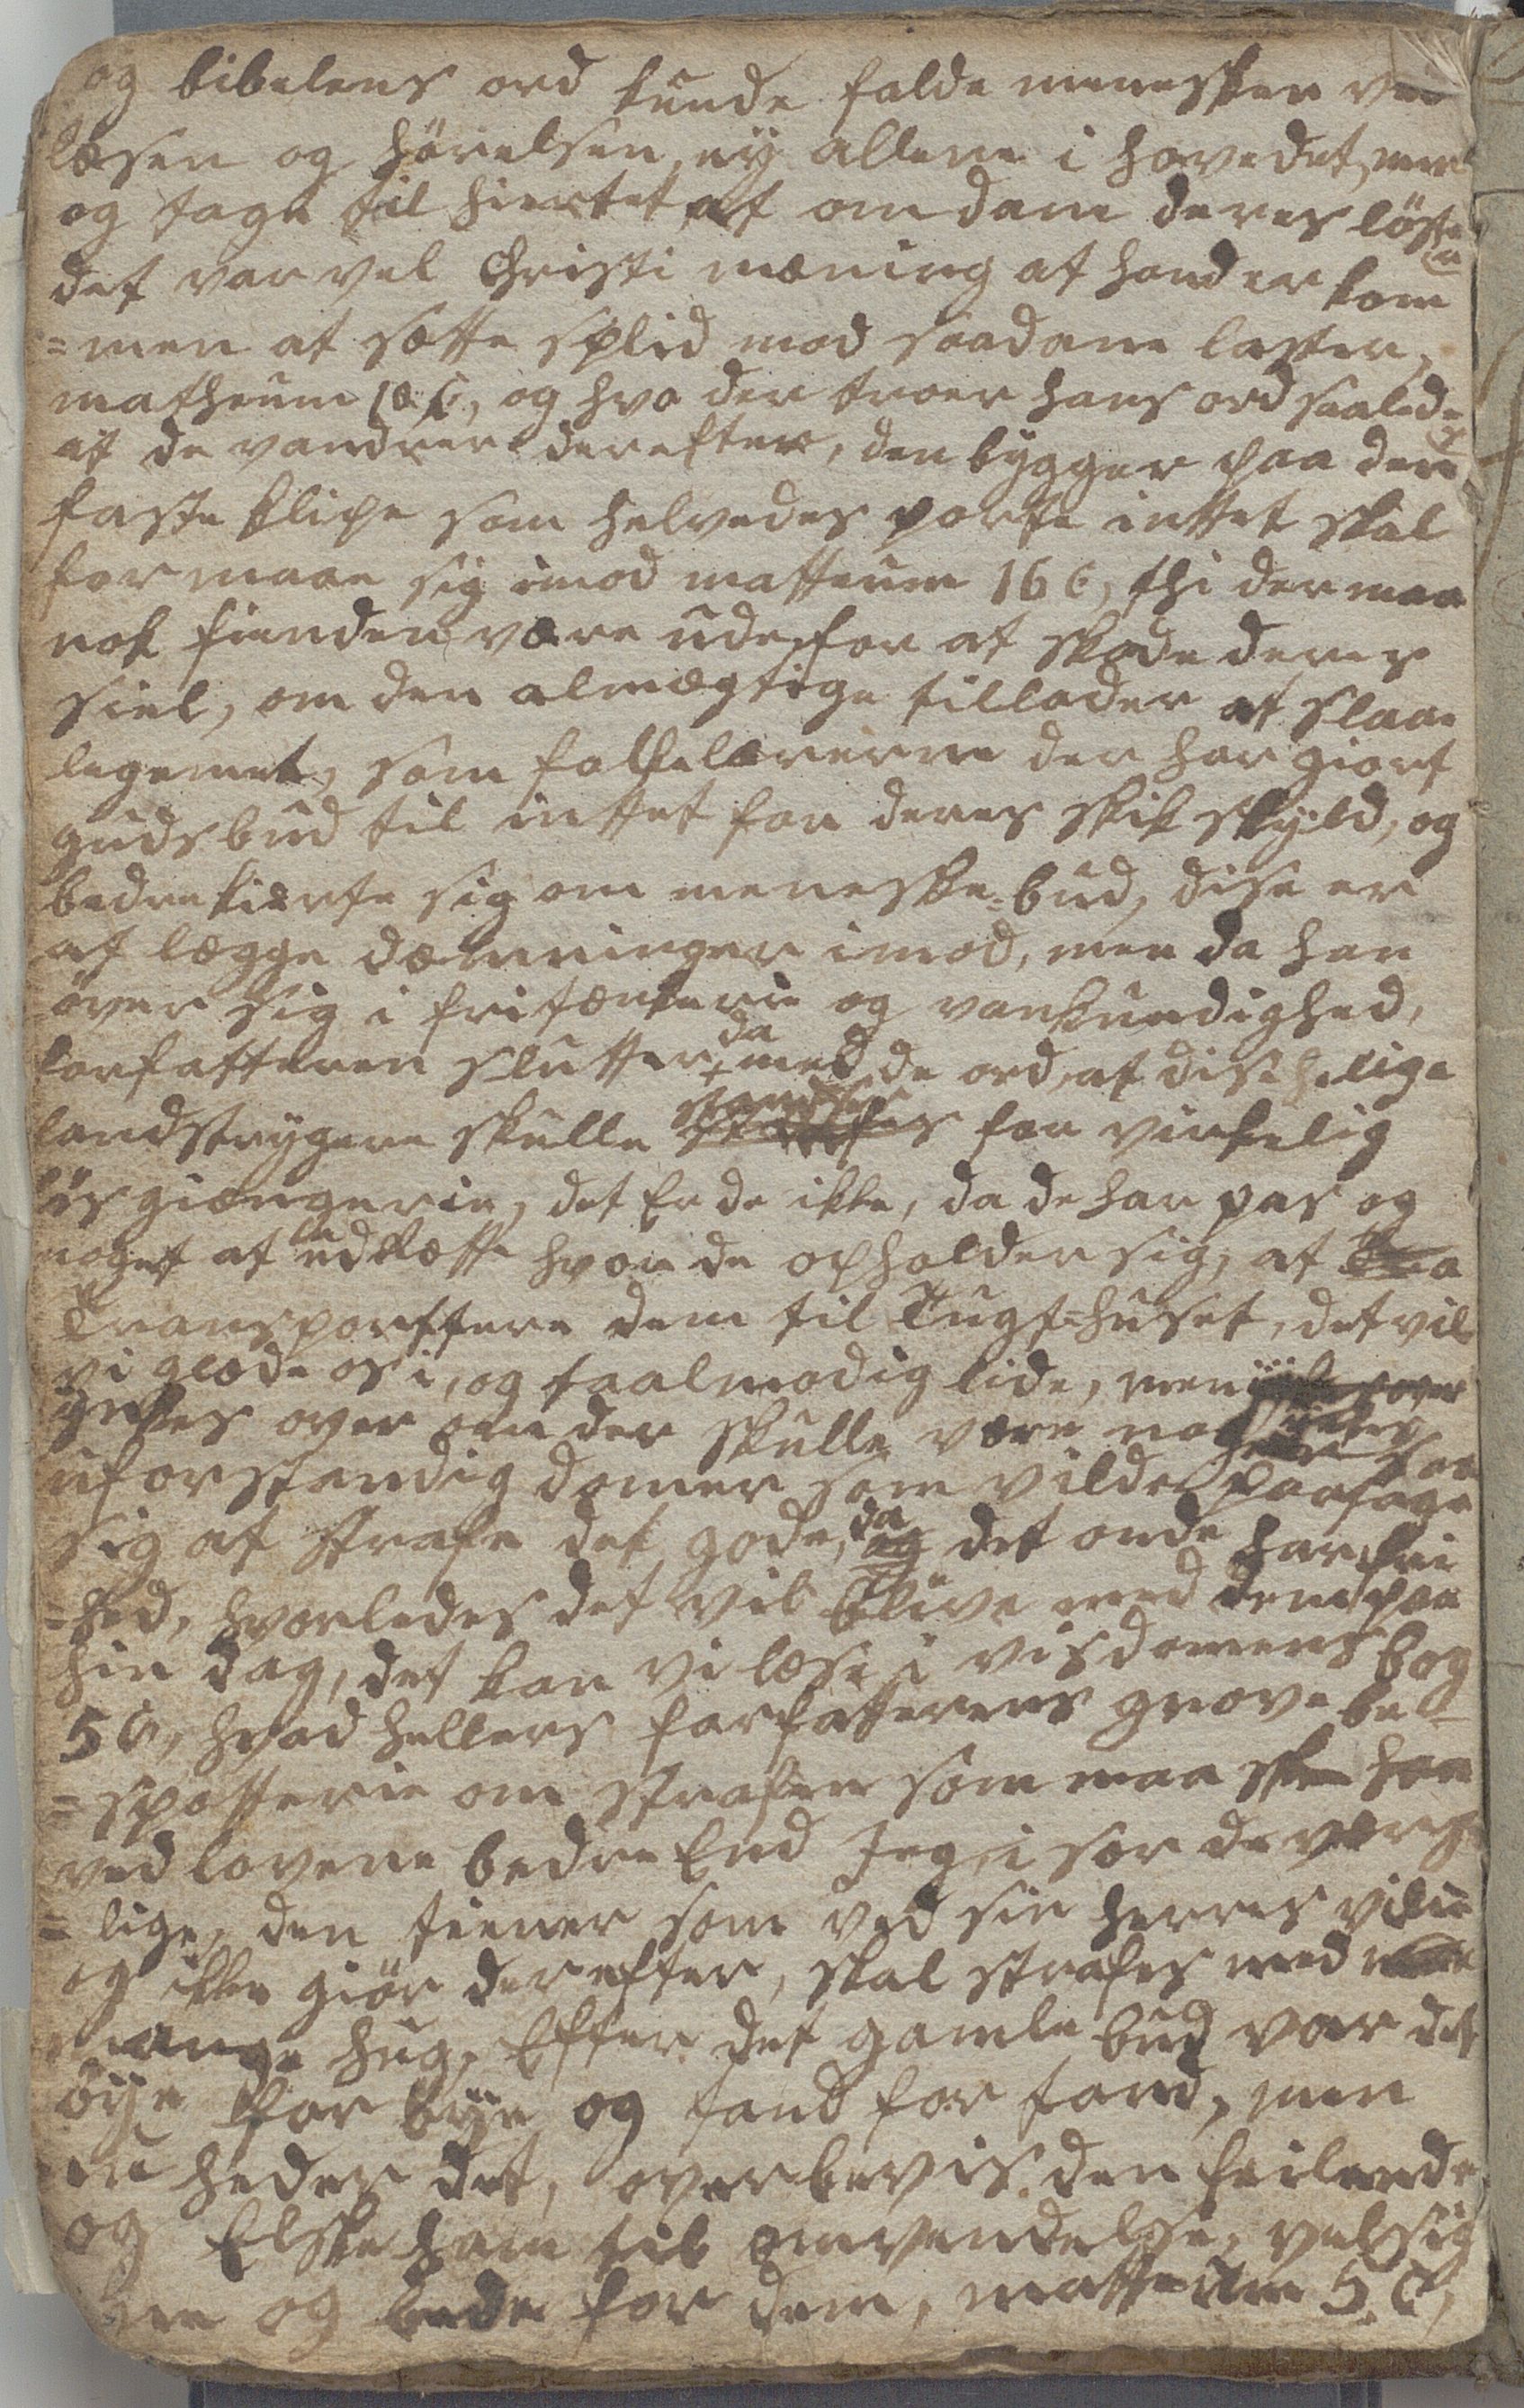 og bibelens ord kunde falde menesker ved
læsen og hörelsen, ey allene i hovedet, men
og tage til hiertet at omdane deres löste
det var vel Christi mæning at hand er kom
=men at sætte splid mod saadane laster,
matheum 10 C, og hvo der troer hans ord saalede
at de vandrer derefter, den bygger paa den
faste klipe som helvedes porte inttet skal
formaae sig imod matteum 16 C, thi der maa
nok fienden være udefor at skade deres
siel, om den almægtige tillader at slaae
legemet, som falskelærerne der har giort
guds bud til inttet for deres skik skyld, og
bedrekierte sig om meneske-bud, dise er
at legge dæmninger imod, men da han
över sig i fritænkerie og vankundighed,
forfatteren slutter da med de ord, at dise hellige
landstrygere skulle standses for virkelig
lösgiængerie, det Er de ikke, da de har pas og
noget at udrætte hvor de opholder sig, at
Transporttere dem til Tugt-huset, det vil
vi glæde os i, og taalmodig lide, men
ynkes over om der skulle være nogen
uforstandig domer som vilde paatage
sig at strafe det gode, da det onde har fri
=hed, hvorledes det vil blive med dem paa
hin dag, det kan vi læse i visdomens bog
5 C, hvad hellers forfatterens grove be
=spotterie om strafen som maa skee han
ved lovene bedre End Jeg, i sær de værds
=lige, den tiener som ved sin herres vilie
og ikke giör derefter, skal strafes med
mange hug, Efter det gamle bud var det
öye for öye og tand for tand, men
nu heder det, overbevis den feilende
og Elske ham til omvendelse, velsig
ne og bede for dem, matteum 5 C,